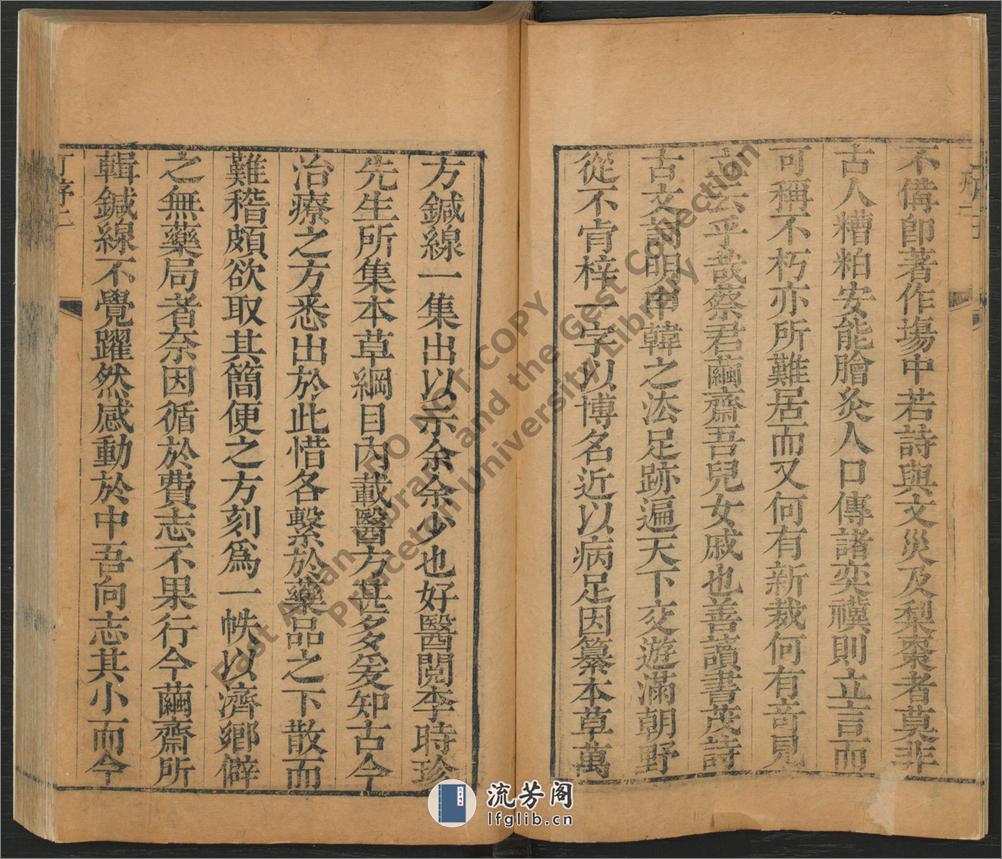 不備即著作場中若詩與文災及梨棗者莫非
古人糟粕安能膾炙人口傳諸奕禩則立言而
可稱不朽亦所難居而又何有新裁何有奇見
云乎哉蔡君繭齋吾兒女戚也善讀書茂詩
古文詞明申韓之法足跡遍天下交遊滿朝野
從不肯梓一字以博名近以病足因纂本草萬
方鍼線一集出以示余余少也好醫閱李時珍
先生所集本草綱目內載醫方甚多爰知古今
治療之方悉出於此惜各繫於藥品之下散而
難稽頗欲取其簡便之方刻為一帙以濟鄉僻
之無藥局者奈因循於費志不果行今繭齋所
輯鍼線不覺躍然感動於中吾向志其小而今
序二
East Asian Library and the Gest Collection
Princeton University Library
DO NOT COPY
流芳阁
lfglib.cn